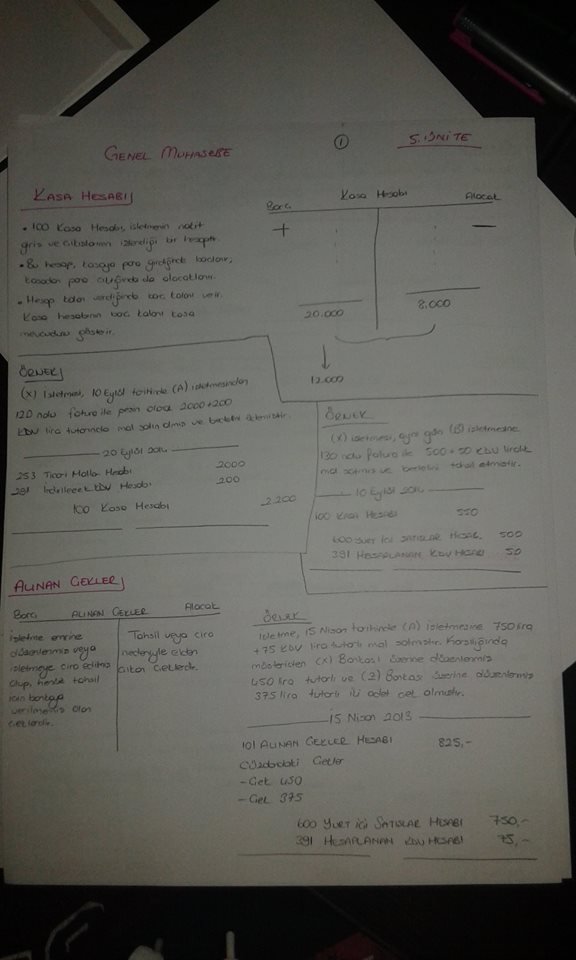 GENEL MUHASEBE
1
5. ÜNİTE
KASA HESABI
• 100 Kasa Hesabı, işletmenin nakit
giriş ve çıkışlarının izlendiği bir hesaptır.
• Bu hesap, kasaya para girdiğinde borçlanır,
kasadan para çıktığında da alacaklanır.
• Hesap kalan verdiğinde borç kalanı verir.
Kasa hesabının borç kalanı kasa
mevcudunu gösterir.
Borç Kasa Hesabı Alacak
+ −
20.000 8.000
12.000
ÖRNEK
(X) İşletmesi, 10 Eylül tarihinde (A) işletmesinden
120 nolu fatura ile peşin olarak 2000+200
KDV lira tutarında mal satın almış ve bedelini ödemiştir.
20 Eylül 2014
253 Ticari Mallar Hesabı 2000
291 İndirilecek KDV Hesabı 200
100 Kasa Hesabı 2.200
ÖRNEK
(X) işletmesi, aynı gün (B) işletmesine
130 nolu fatura ile 500+50 KDV liralık
mal satmış ve bedelini tahsil etmiştir.
10 Eylül 2014
100 KASA HESABI 550
600 YURT İÇİ SATIŞLAR HESAB. 500
391 HESAPLANAN KDV HESABI 50
ALINAN ÇEKLER
Borç ALINAN ÇEKLER Alacak
İşletme emrine
düzenlenmiş veya
işletmeye ciro edilmiş
olup, henüz tahsil
için bankaya
verilmemiş olan
çeklerdir.
Tahsil veya ciro
nedeniyle elden
çıkan çeklerdir.
ÖRNEK
İşletme, 15 Nisan tarihinde (A) işletmesine 750 lira
+75 KDV lira tutarlı mal satmıştır. Karşılığında
müşteriden (X) Bankası üzerine düzenlenmiş
450 lira tutarlı ve (Z) Bankası üzerine düzenlenmiş
375 lira tutarlı iki adet çek almıştır.
15 Nisan 2013
101 ALINAN ÇEKLER HESABI 825,-
Cüzdandaki Çekler
- Çek 450
- Çek 375
600 YURT İÇİ SATIŞLAR HESABI 750,-
391 HESAPLANAN KDV HESABI 75,-